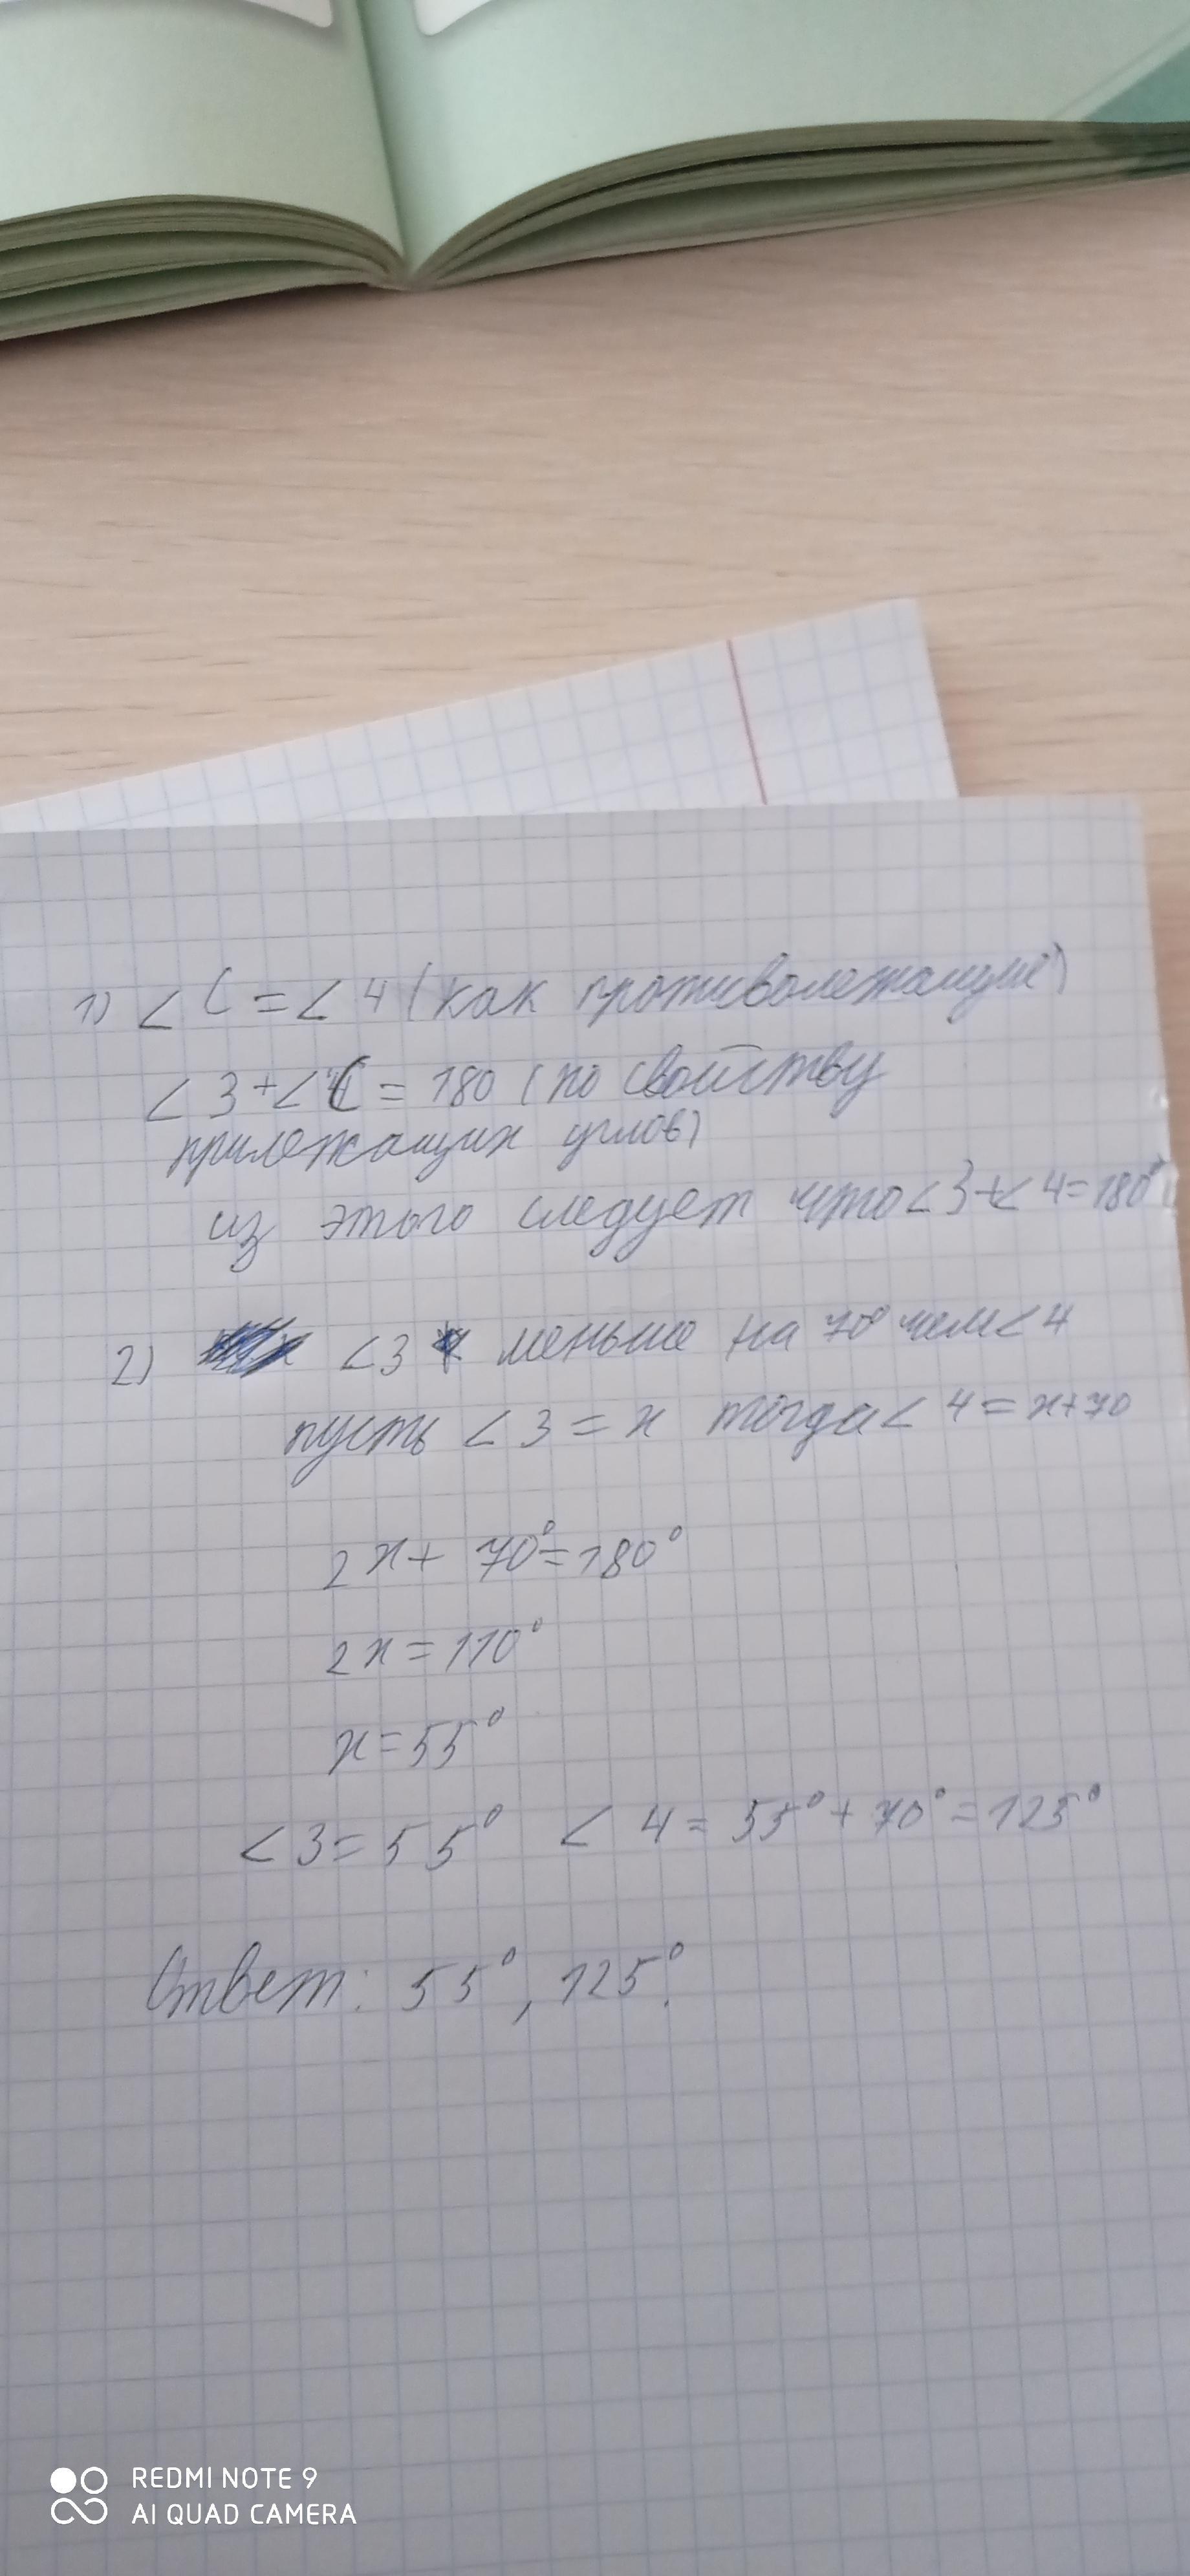 1) ∠C = ∠4 (как противолежащие)
∠3 + ∠C = 180 (по свойству
прилежащих углов)
из этого следует что ∠3 + ∠4 = 180°
2) ∠3 меньше на 70° чем ∠4
пусть ∠3 = x тогда ∠4 = x+70
2x + 70° = 180°
2x = 110°
x = 55°
∠3 = 55° ∠4 = 55° + 70° = 125°
Ответ: 55°, 125°.
REDMI NOTE 9
AI QUAD CAMERA